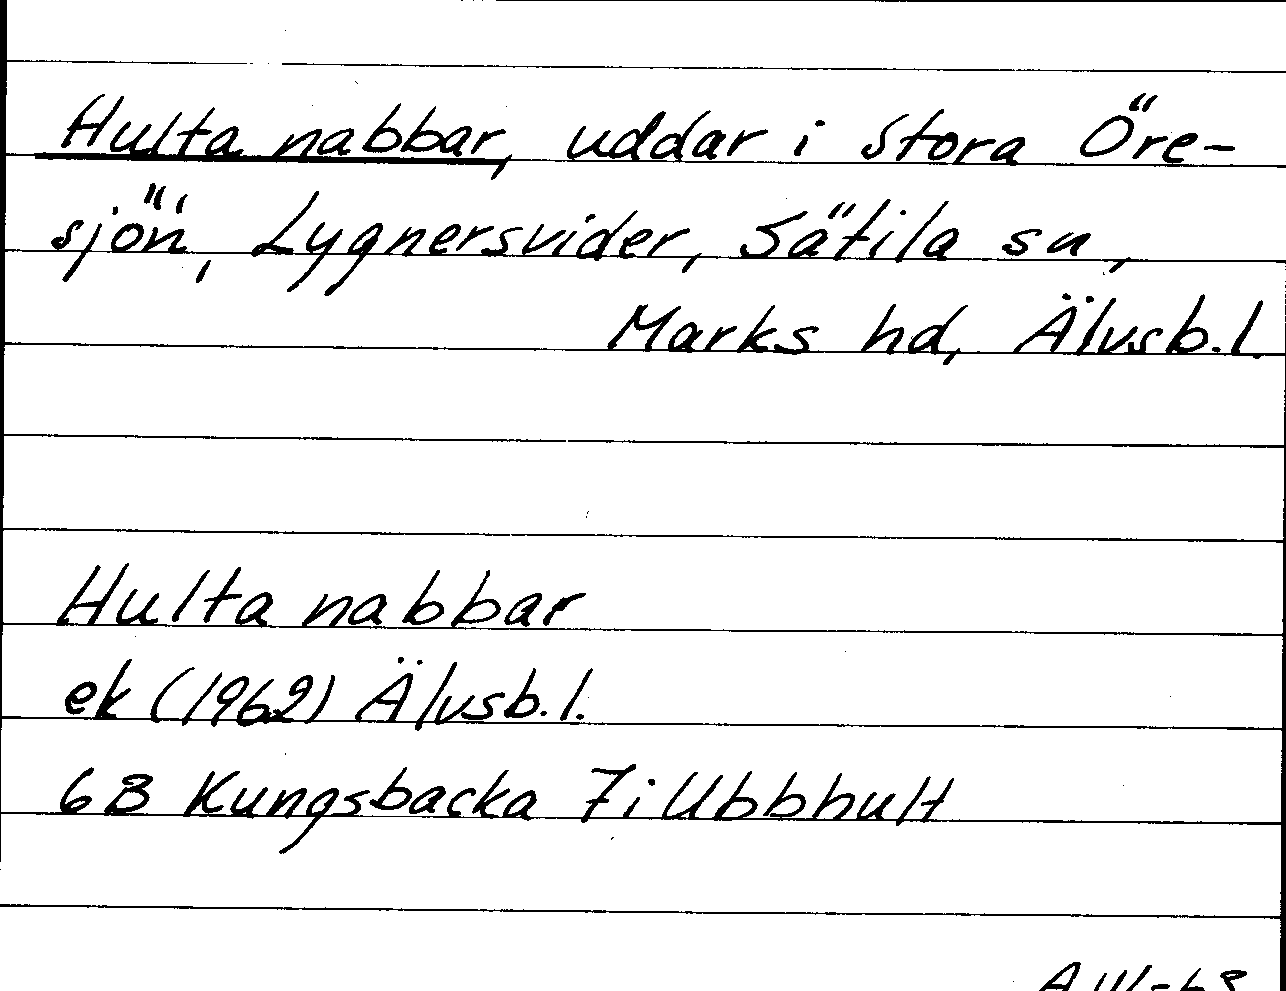 Hulta nabbar, uddar i Stora Öre-
sjön, Lygnersvider, Sätila sn,
Marks hd, Älvsb.l.
Hulta nabbar
ek (1962) Älvsb.l.
6B Kungsbacka 7i Ubbhult